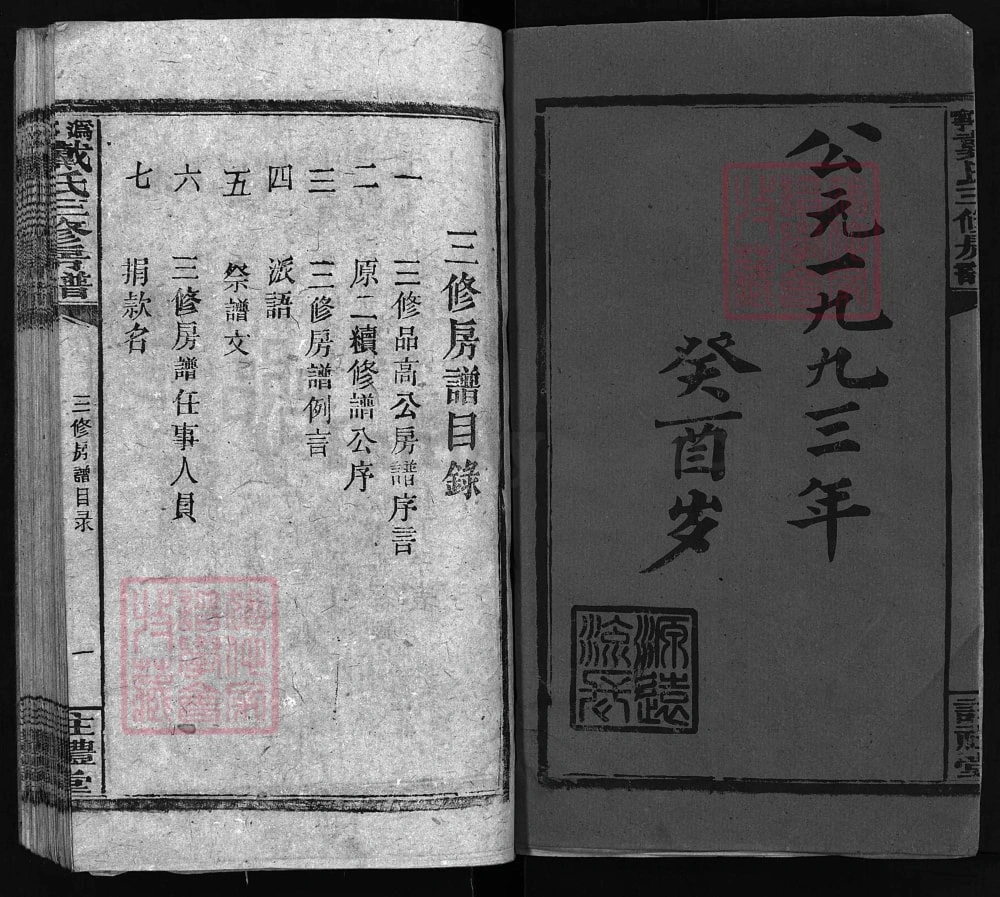 公元一九九三年
癸酉岁
源遠
流長
三修房譜目錄
一 三修品高公房譜序言
二 原二續修譜公序
三 三修房譜例言
四 派語
五 祭譜文
六 三修房譜任事人員
七 捐款名
戴氏三修房譜
三修房譜目录
一
註禮堂